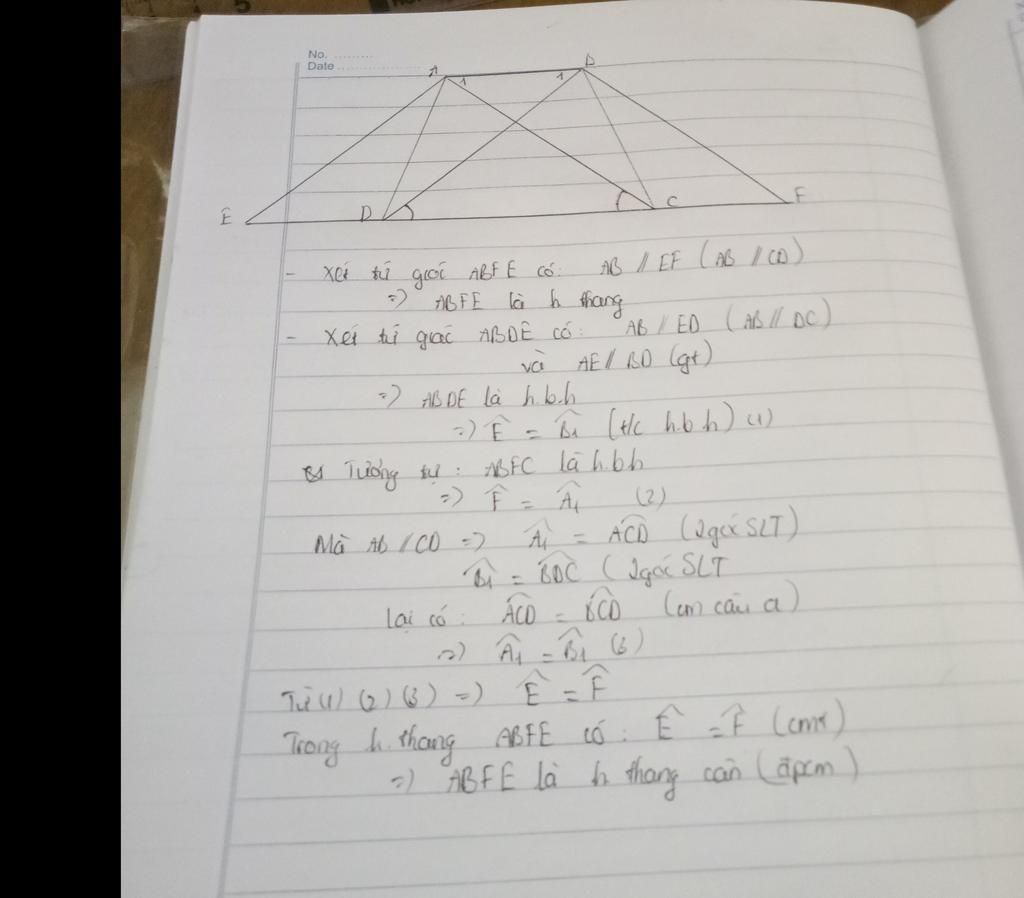 No. .........
Date ....................
A 1 1 B
E D C F
- Xét tứ giác ABFE có: AB // EF (AB // CD)
=> ABFE là h thang
- Xét tứ giác ABDE có: AB // ED (AB // DC)
và AE // BD (gt)
=> ABDE là h.b.h
=> Ê = B̂₁ (t/c h.b.h) (1)
Tương tự: ABFC là h.b.h
=> F̂ = Â₁ (2)
Mà AB // CD => Â₁ = ACD̂ (2 góc SLT)
B̂₁ = BDĈ (2 góc SLT
Lại có: ACD̂ = BCD̂ (cm câu a)
=> Â₁ = B̂₁ (3)
Từ (1) (2) (3) => Ê = F̂
Trong h.thang ABFE có: Ê = F̂ (cmt)
=> ABFE là h thang cân (đpcm)